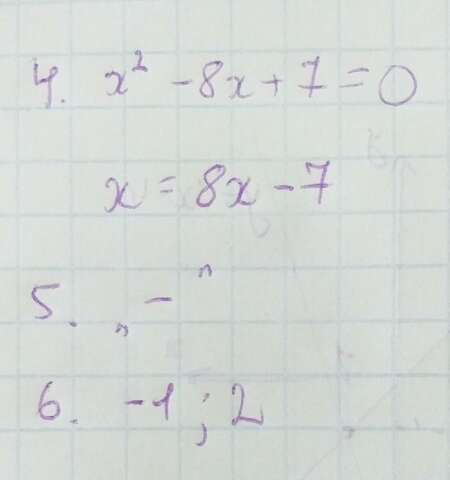 4. x² - 8x + 7 = 0
x = 8x - 7
5. „ - "
6. -1 ; 2